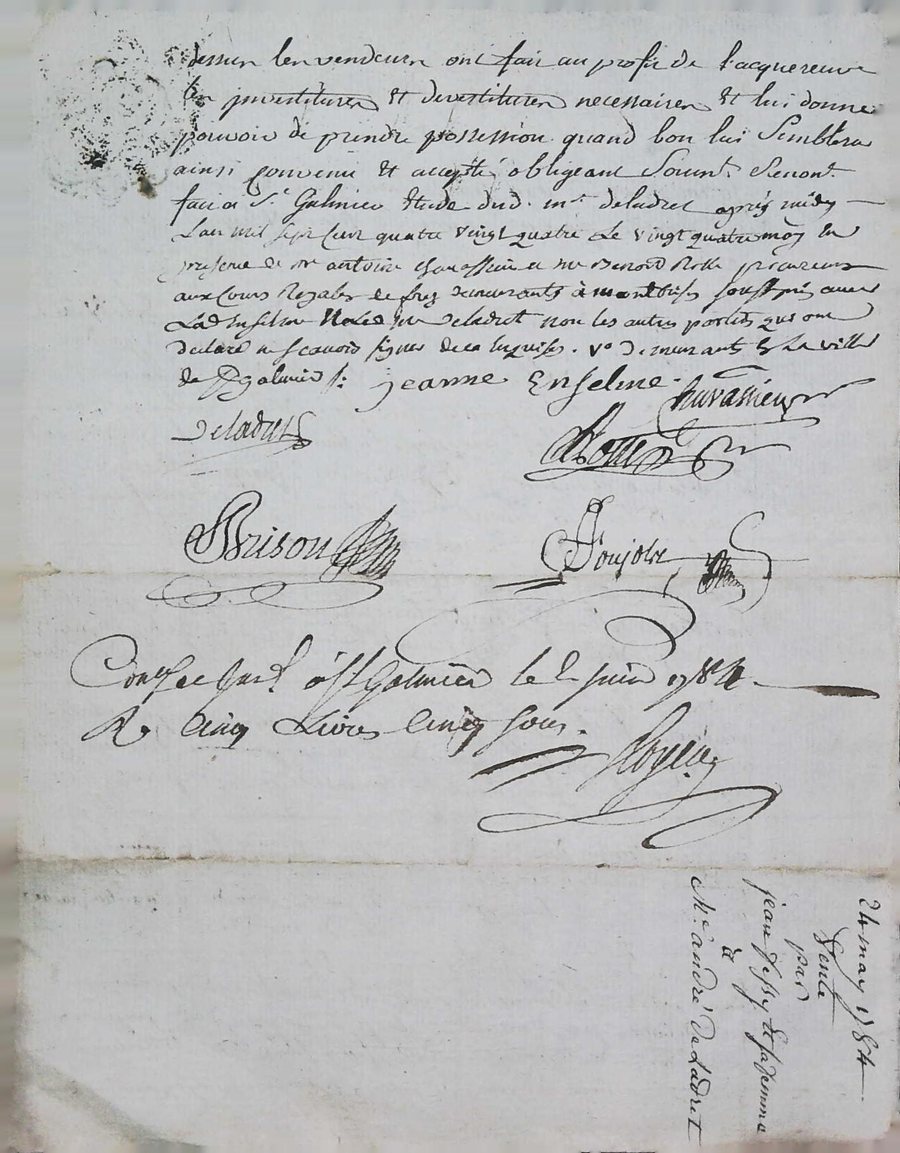 dessus les vendeurs ont fait au profit de l'acquereur
les investitures et devestitures necessaires et lui donne
pouvoir de prendre possession quand bon lui Semblera
ainsi convenu et accepté obligeant Soumt Renont
fait a St Galmier Etude dud. me deladret après midy
L'an mil sept cent quatre vingt quatre Le vingt quatre may en
presence de me antoine et me Benoit procureurs
aux Cours Royales de forez demeurants à montbrison soussignés avec
Lad Enselme et Led me deladret non les autres parties qui ont
declaré ne scavoir signer de ce enquises. demeurants en La ville
de St galmier jeanne Enselme.
chavassieu
Deladret
Brison
Poujolz
à St Galmier le 2 juin 1784
Rs cinq Livres cinq sous.
24 may 1784
Vente
par
jean et sa femme
a
Me andré DeLadret